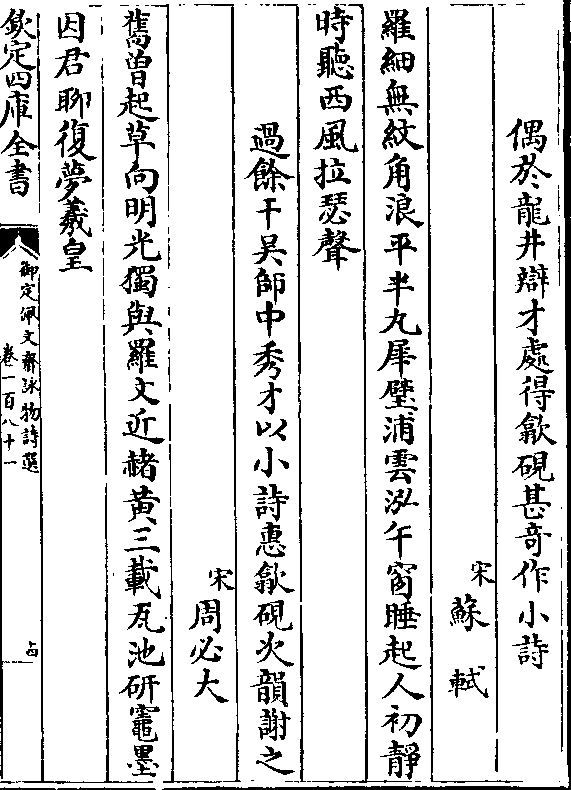 偶於龍井辯才處得歙硯甚奇作小詩
宋蘇軾
羅細無紋角浪平半丸犀璧浦雲泓午窗睡起人初靜
時聽西風拉瑟聲
過餘干吳師中秀才以小詩惠歙硯次韻謝之
宋周必大
舊曾起草向明光獨與羅文近赭黃三載瓦池研竈墨
因君聊復夢羲皇
欽定四庫全書
御定佩文齋詠物詩選
卷一百八十一